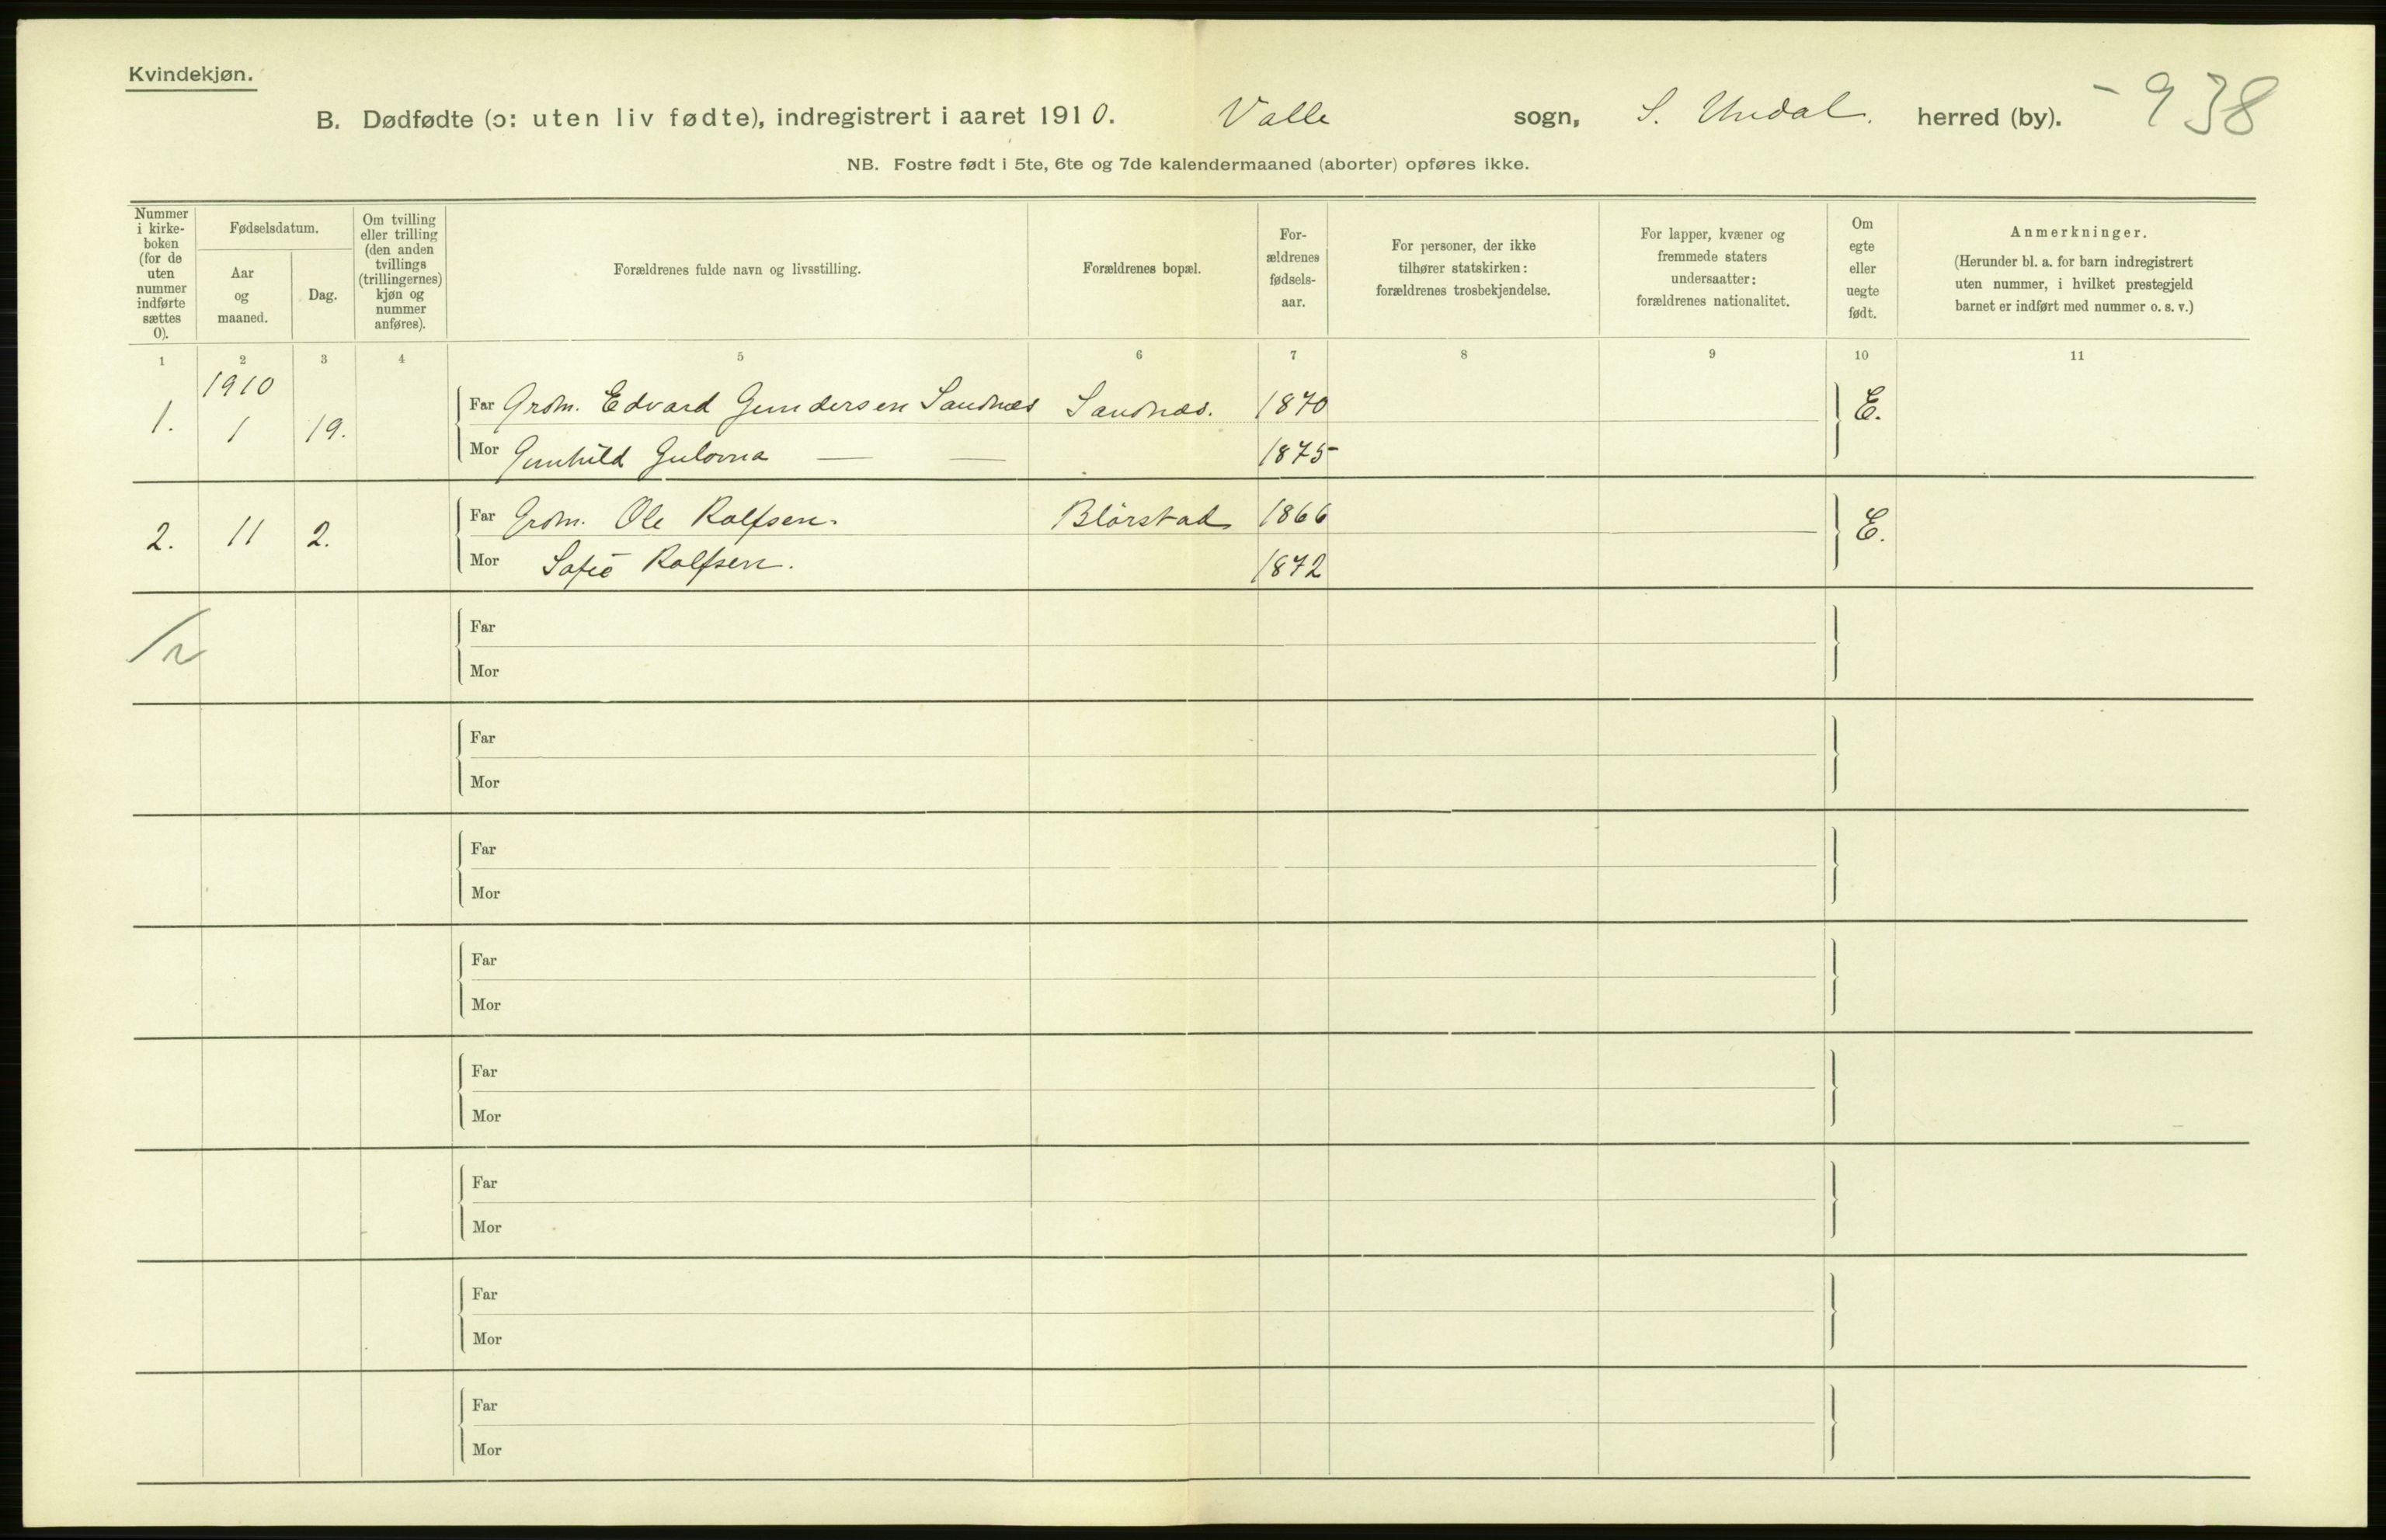 Kvindekjøn.
B. Dødfødte (ɔ: uten liv fødte), indregistrert i aaret 1910. Valle sogn, S. Undal. herred (by). - 938
NB. Fostre født i 5te, 6te og 7de kalendermaaned (aborter) opføres ikke.
Nummer
i kirke-
boken
(for de
uten
nummer
indførte
sættes
0).
Fødselsdatum.
Aar
og
maaned.
Dag.
Om tvilling
eller trilling
(den anden
tvillings
(trillingernes)
kjøn og
nummer
anføres).
Forældrenes fulde navn og livsstilling.
Forældrenes bopæl.
For-
ældrenes
fødsels-
aar.
For personer, der ikke
tilhører statskirken:
forældrenes trosbekjendelse.
For lapper, kvæner og
fremmede staters
undersaatter:
forældrenes nationalitet.
Om
egte
eller
uegte
født.
Anmerkninger.
(Herunder bl. a. for barn indregistrert
uten nummer, i hvilket prestegjeld
barnet er indført med nummer o. s. v.)
1 2 3 4 5 6 7 8 9 10 11
1910
1. 1 19. Far Grdm. Edvard Gundersen Sandnæs Sandnæs. 1870 E.
Mor Gunhild Gulovna — — 1875
2. 11 2. Far Grdm. Ole Rolfsen. Blörstad 1866 E.
Mor Sofie Rolfsen. 1872
/2
Far
Mor
Far
Mor
Far
Mor
Far
Mor
Far
Mor
Far
Mor
Far
Mor
Far
Mor